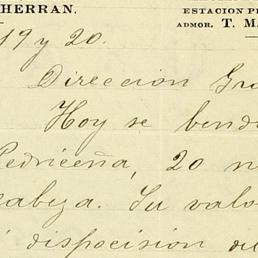 HERRAN.
ESTACION PE
ADMOR. T. M.
19 y 20.
Direccion Gra
Hoy se bend
Pedriceña, 20 n
cabeza. Su valo
i disposicion de